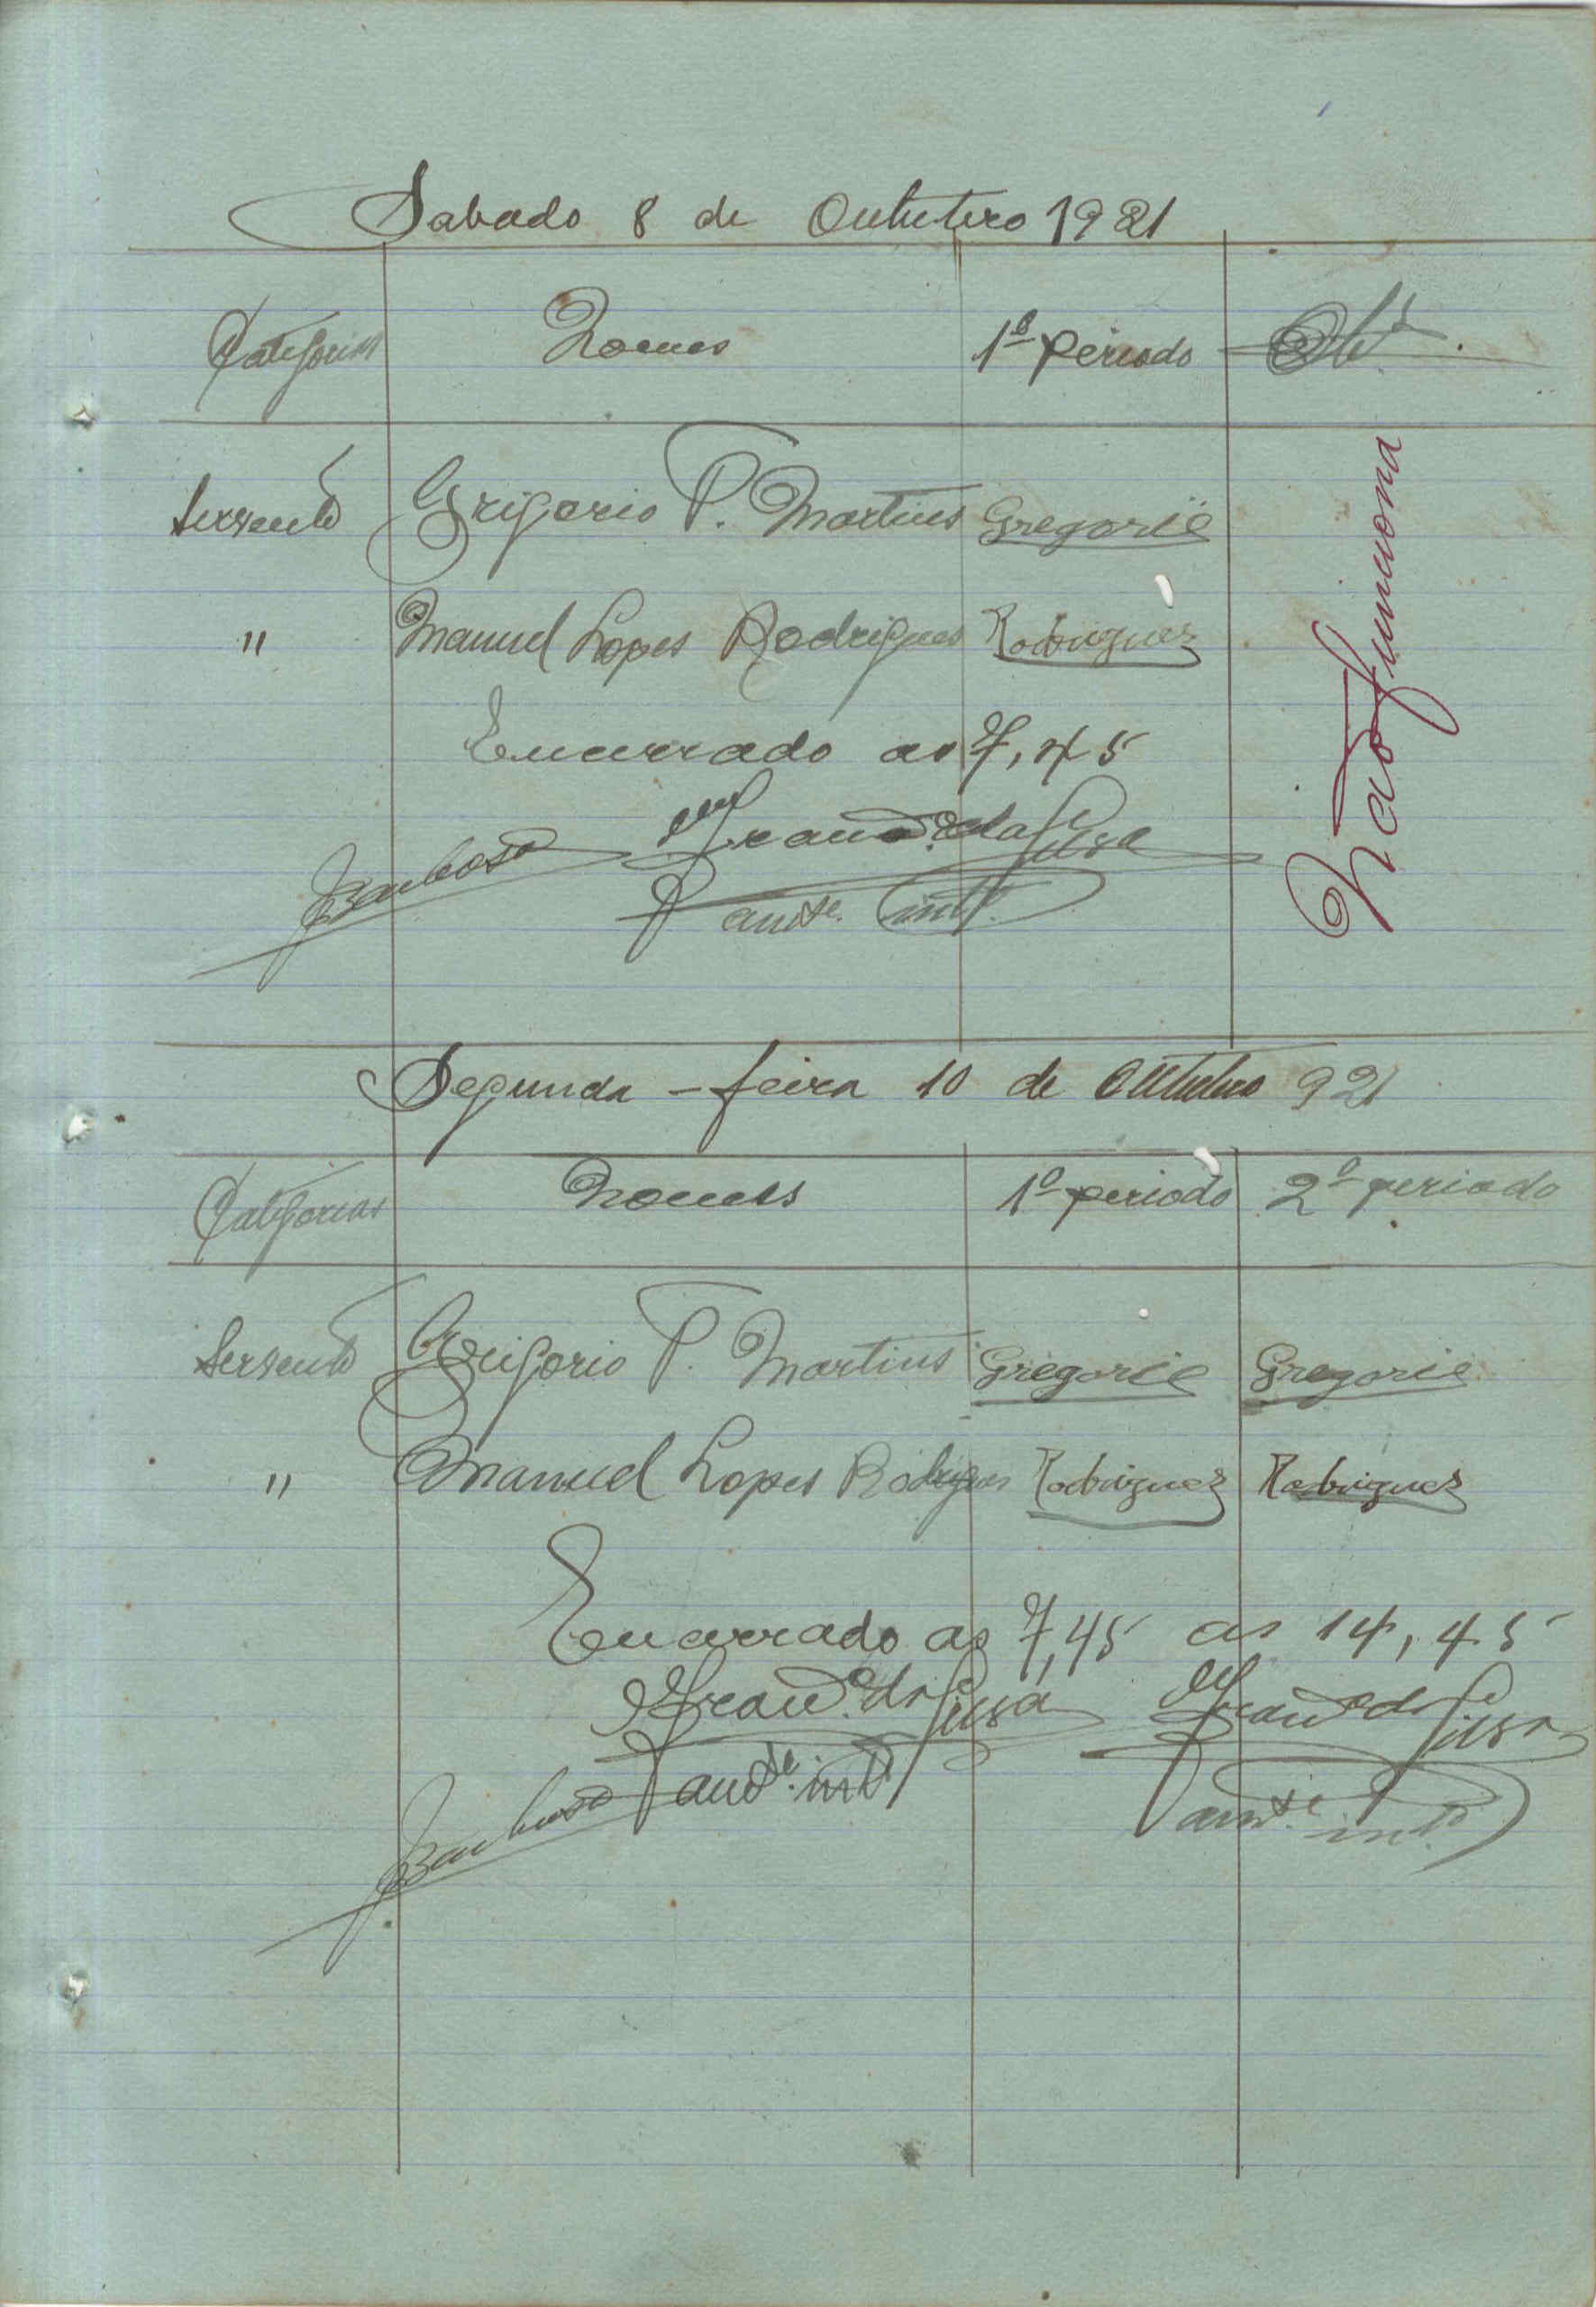 Sabado 8 de Outubro 1921
Categorias Nomes 1º periodo Obs.
Servente Grigorio P. Martins Gregorio
" Manuel Lopes Rodrigues Rodriguez
Encerrado as 7,45
Barbosa da Silva
Não funciona
Segunda-feira 10 de Outubro 921
Categorias Nomes 1º periodo 2º periodo
Servente Grigorio P. Martins Gregorio Gregorio
" Manuel Lopes Rodrigues Rodriguez Rodriguez
Encerrado as 7,45 as 14,45
da Silva da Silva
Barbosa